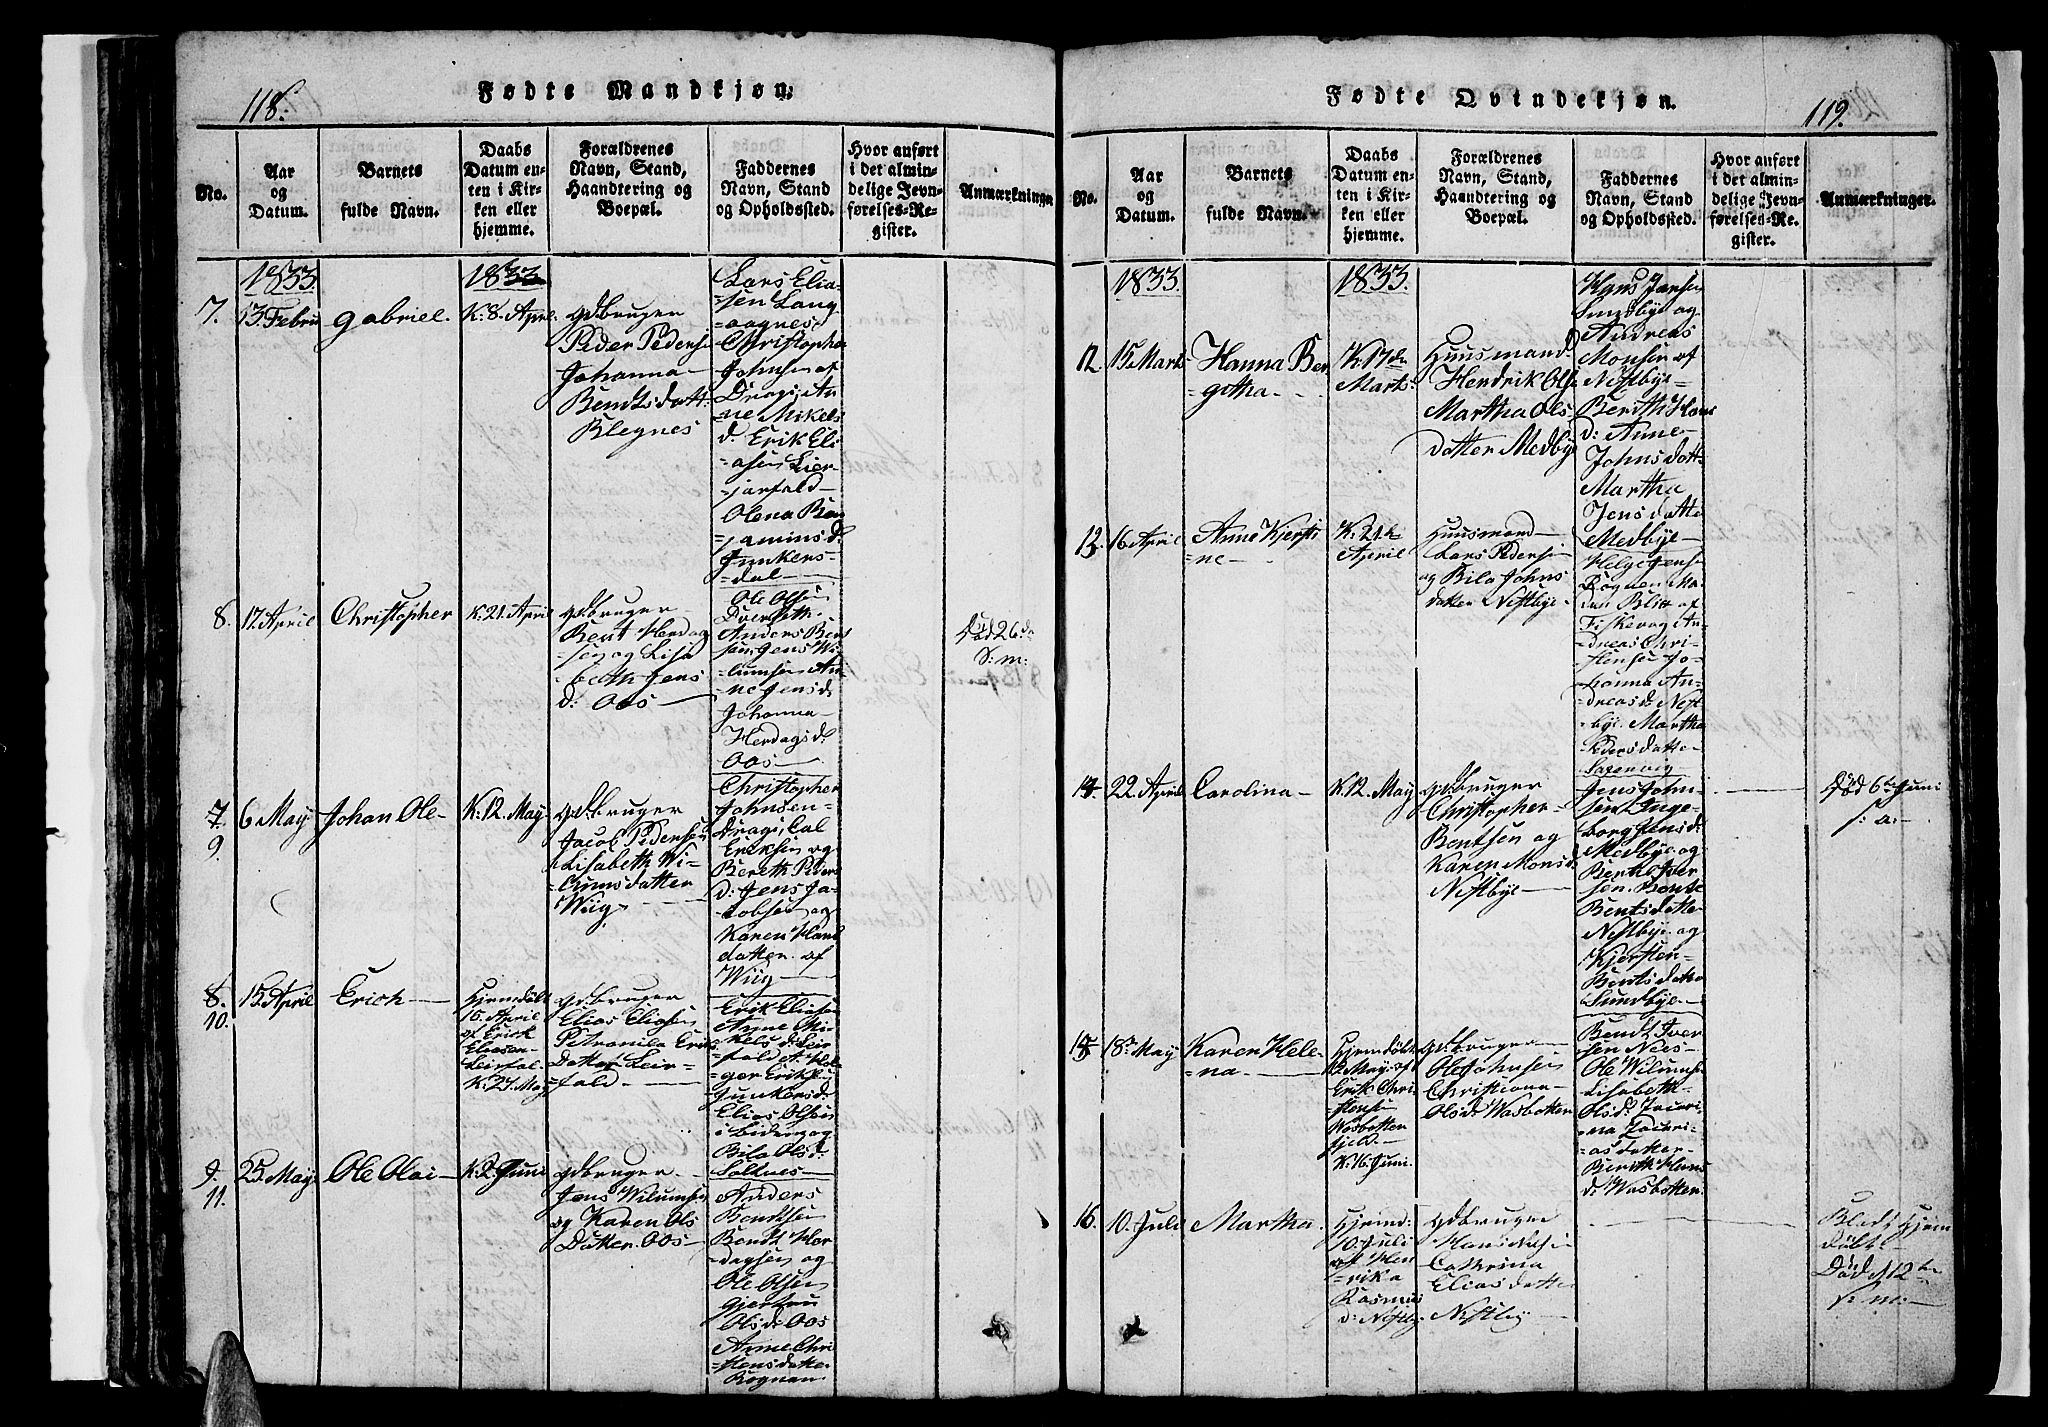 118.
Fødte Mandkjøn.
No.
Aar
og
Datum.
Barnets
fulde Navn.
Daabs
Datum en-
ten i Kir-
ken eller
hjemme.
Forældrenes
Navn, Stand,
Haandtering og
Boepæl.
Faddernes
Navn, Stand
og Opholdssted.
Hvor anført
i det almin-
delige Jevn-
førelses-Re-
gister.
Anmærkninge
1833.
1833
7.
13 Febru
Gabriel.
K: 8. April.
Gdbruger
Peder Pedersen
Johanna
Bendtsdatt.
Blegnes
Lars Elia-
=sen Lang
=aagnes
Christopher
Johnsen af
Drags, An-
=ne Mikels
d. Erik Eli
=asen Leer
=jarfald
Olena Ben
=jamins d.
Junkers-
=dal
8.
17 April
Christopher
K: 21. April
Gdbruger
Bent Herdag
=sen og Lisa
beth Jens
d: Oos
Ole Olsen
Anders Bent
sen, Jens Wi-
lumsen An-
ne Jensd.
Johanna
Herdagsd.
Oos
Død 26de
S: m:
7.
9.
6 May
Johan Ole
K: 12. May
Gdbruger
Jacob Pedersen
Lisabeth Wi-
=lumsdatter
Wiig
Christopher
Johnsen
Drags, Cal
Eriksen og
Bereth Peders
d: Jens Ja-
cobsen og
Karen Hans
datter af
Wiig
8.
10.
15 April
Erich
Hjemdøbt
15. April
af Erick
Eliesen
Leirfal.
K: 27. May
Gdbruger
Elias Eliasen
Petronila Eriks
Datter Leir-
=fald
Erik Eliasen
Anne Mi-
kels d: Leir
=fald
=ger Eriksen
Junkersd:
Elias Olsen
Bila Olsd:
Saltnes
9.
11.
25 May
Ole Olai
K: 2 Juni
Gdbruger
Jens Wilumsen
og Karen Ols
Datter. Oos
Anders
Bendtsen
Bendt Her-
dagsen og
Ole Olsen
Gjertru
Olsd: Oos
Anne Chri
=stensdatter
Rognan
Fødte Qvindekjøn.
119.
No.
Aar
og
Datum.
Barnets
fulde Navn.
Daabs
Datum en-
ten i Kir-
ken eller
hjemme.
Forældrenes
Navn, Stand,
Haandtering og
Boepæl.
Faddernes
Navn, Stand
og Opholdssted.
Hvor anført
i det almin-
delige Jevn-
førelses-Re-
gister.
Anmærkninger.
1833.
1833.
12.
15 Marts
Hanna Ber
=githa
K: 17de
Marts
Huusmand
Hendrik Olse
Martha Ols
datter Medbye
Hans Jensen
Sundbye og
Andreas
Monsen af
Nestbye
Berith Hans
d: Anne
Johnsdatt
Martha
Jensdatte
Medbye
13.
16 April
Anne Kjersti
=ne
K: 21de
April
Huusmand
Lars Pedersen
og Bila Johns
datter Nestbye
Helge Jense
Rognen Ma
Fiskevag An-
=dreas Chri-
stensen Jo-
hanna An-
=dreasd: Nest
bye. Martha
Pedersdatte
Saxenvig
14
22 April
Carolina
K: 12. May
Gdbruger
Christopher
Bentsen og
Karen Monsd:
Nestbye
Jens John-
sen Inge-
borg Jensd:
Medbye og
Bent Iver
sen.
Bentsdatter
Nestbye og
Kjersten
Bentsdatter
Sundbye
Død 6te Juni
s: a:
15
18de May
Karen Hele-
=na
Hjemdøbt
May af
Erik Chri
=stensen
Wasbotten
fjeld
K: 16. Juni.
Gdbruger
Ole Johnsen
Christiana
Olsd: Wasbotten
Bendt Iver
sen Nees
Ole Wilumsen
Lisabeth
Olsd:
as datter
Berith Hans
d: Wasbotten
16.
10. Juli
Martha.
Hjem:
10. Juli
af Hen
=rika
Rasmus
d: Nestby
Gdbruger
Hans Nilsen
Cathrina
Eliasdatte
Nestby
Blev Hjem
døbt
Død d 12te
s: m: